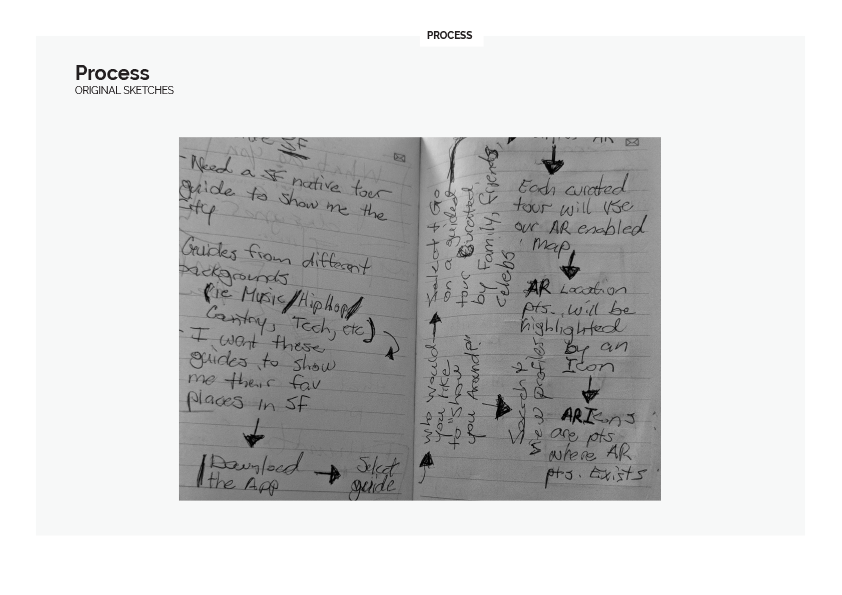 PROCESS
Process
ORIGINAL SKETCHES
SF
- Need a SF native tour
guide to show me the
city
Guides from different
backgrounds
(ie Music/HipHop/
Country, Tech, etc)
- I want these
guides to show
me their fav
places in SF
Download
the App
Select
guide
who would
you like
to "show
you Around?"
Search &
view profiles
Select & Go
on a guided
tour curated
by Family, Friends,
celebs
AR
Each curated
tour will use
our AR enabled
map
AR Location
pts. will be
highlighted
by an
Icon
AR Icons
are pts.
where AR
pts. Exists